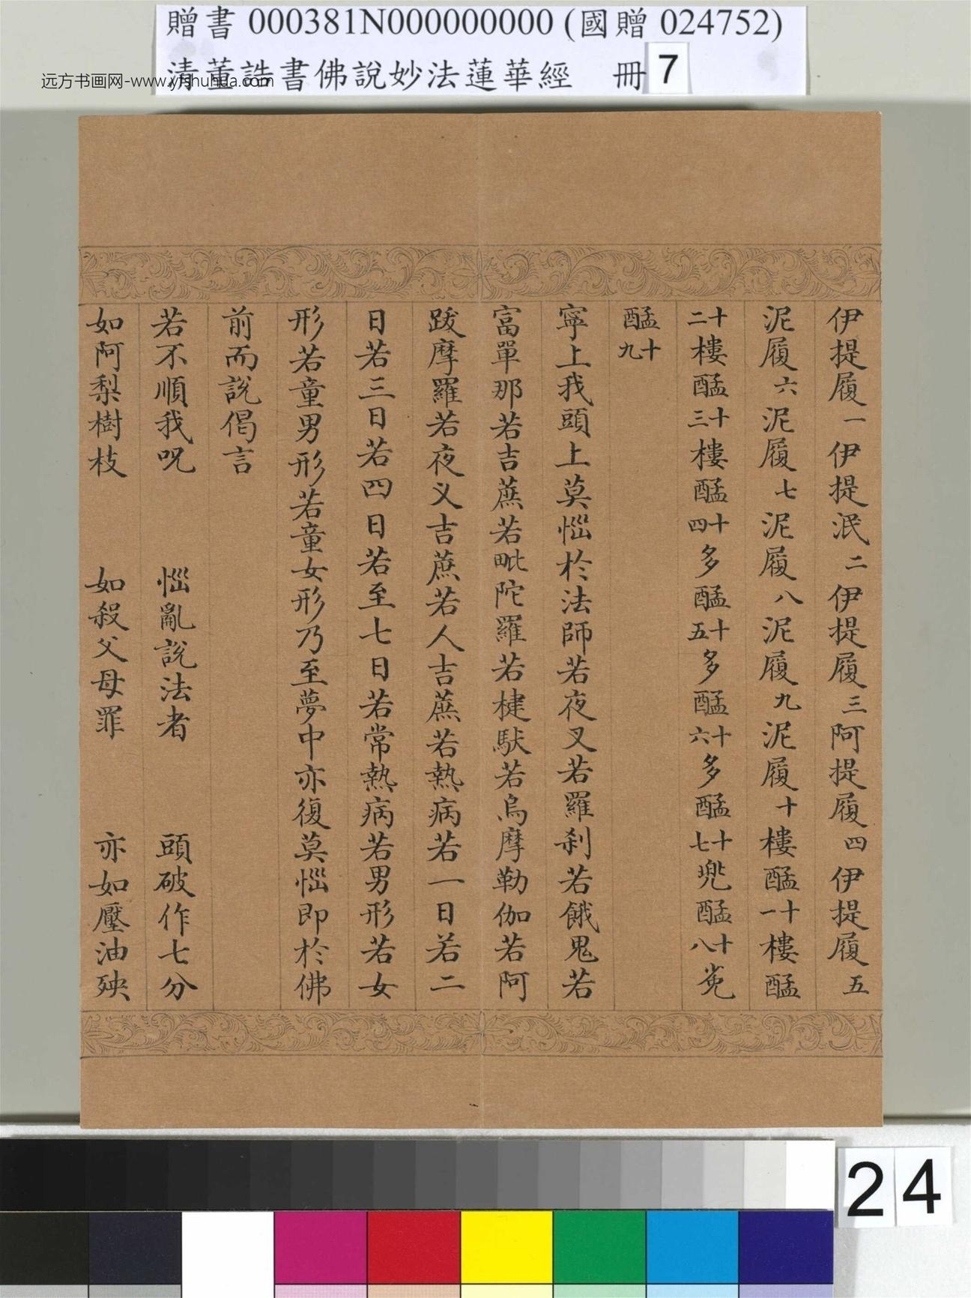 贈書 000381N000000000 (國贈 024752)
清董誥書佛說妙法蓮華經 冊 7
远方书画网-www.yfshuhua.com
伊提履一伊提泯二伊提履三阿提履四伊提履五
泥履六泥履七泥履八泥履九泥履十樓醯十一樓醯
十二樓醯十三樓醯十四多醯十五多醯十六多醯十七兜醯十八㝹
醯十九
寧上我頭上莫惱於法師若夜叉若羅刹若餓鬼若
富單那若吉蔗若毗陀羅若揵馱若烏摩勒伽若阿
跋摩羅若夜叉吉蔗若人吉蔗若熱病若一日若二
日若三日若四日若至七日若常熱病若男形若女
形若童男形若童女形乃至夢中亦復莫惱即於佛
前而說偈言
若不順我呪 惱亂說法者 頭破作七分
如阿梨樹枝 如殺父母罪 亦如壓油殃
24